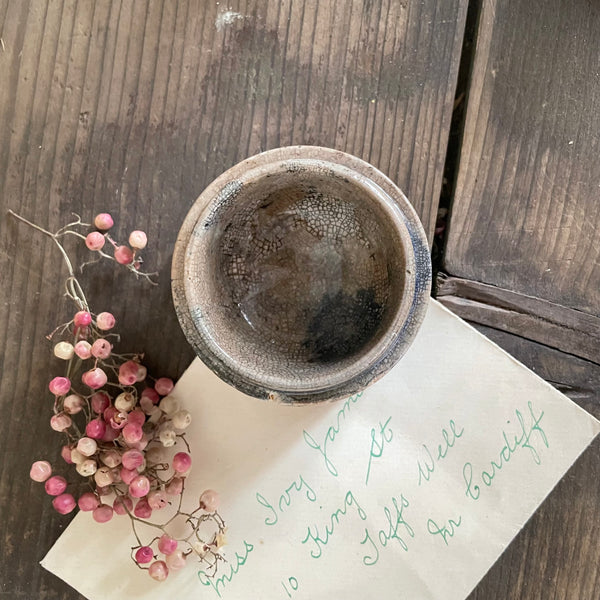 Miss Ivy
10 King St
Taffs Well
Nr Cardiff